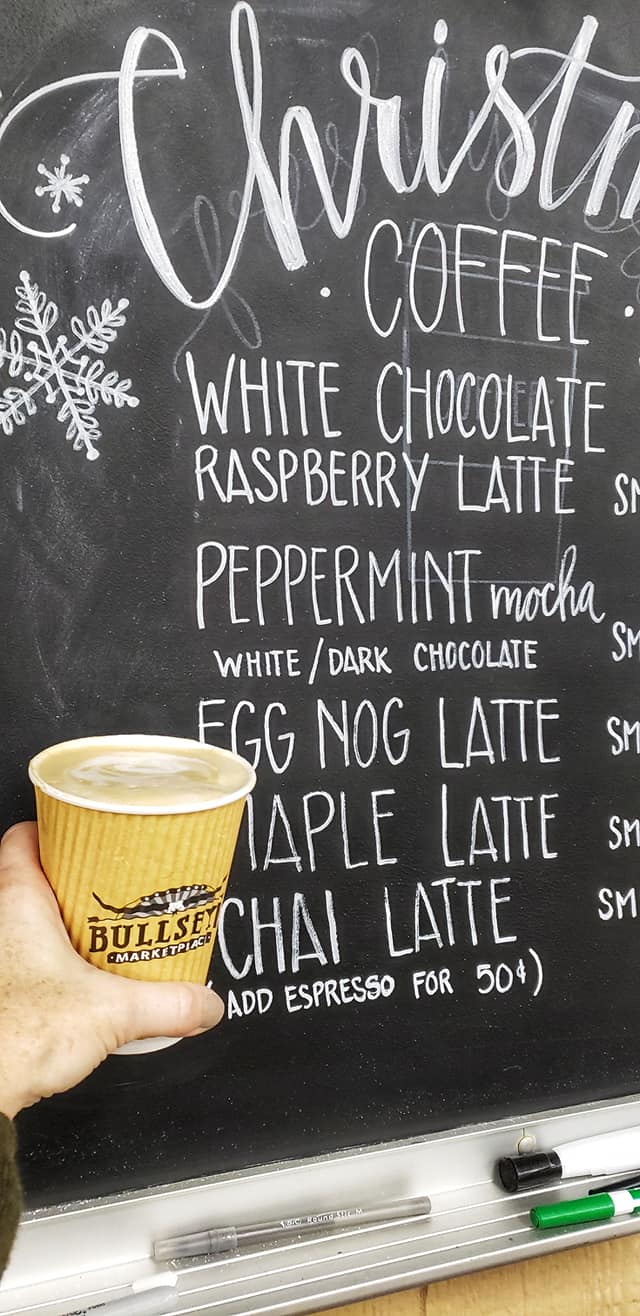 Christm
COFFEE
WHITE CHOCOLATE
RASPBERRY LATTE SM
PEPPERMINT mocha SM
WHITE/DARK CHOCOLATE
EGG NOG LATTE SM
MAPLE LATTE SM
CHAI LATTE SM
(ADD ESPRESSO FOR 50¢)
BULLSEY
MARKETPLACE
BIC Round Stic M